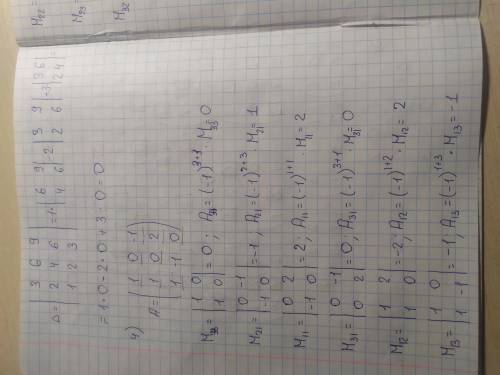 M₂₂ =
M₂₃ =
M₃₂
Δ = |3 6 9|
|2 4 6|
|1 2 3| = 1· |6 9|
|4 6| -2 |3 9|
|2 6| +3 |3 6|
|2 4| =
= 1·0 - 2·0 + 3·0 = 0
4)
A = (1 0 -1)
(1 0 2)
(1 -1 0)
|1 0|
|1 0| = 0; A₃₃ = (-1)³⁺³ · M₃₃ = 0
M₂₁ = |0 -1|
|-1 0| = -1; A₂₁ = (-1)²⁺³ · M₂₁ = 1
M₁₁ = |0 2|
|-1 0| = 2; A₁₁ = (-1)¹⁺¹ · M₁₁ = 2
M₃₁ = |0 -1|
|0 2| = 0; A₃₁ = (-1)³⁺¹ · M₃₁ = 0
M₁₂ = |1 2|
|1 0| = -2; A₁₂ = (-1)¹⁺² · M₁₂ = 2
M₁₃ = |1 0|
|1 -1| = -1; A₁₃ = (-1)¹⁺³ · M₁₃ = -1